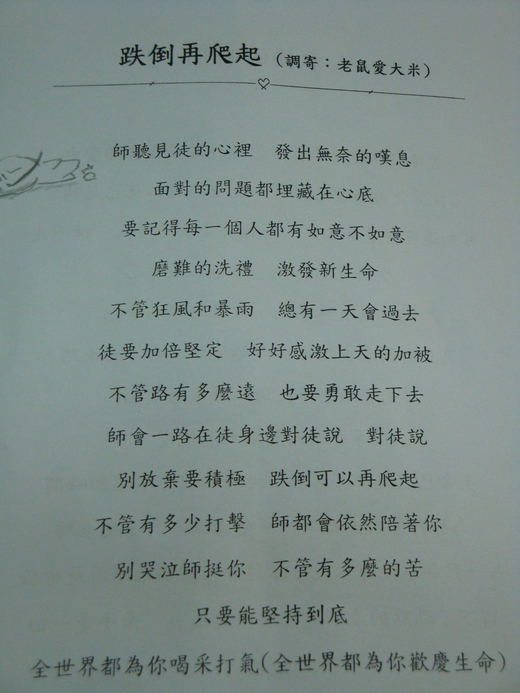 跌倒再爬起（調寄：老鼠愛大米）
師聽見徒的心裡　發出無奈的嘆息
面對的問題都埋藏在心底
要記得每一個人都有如意不如意
磨難的洗禮　激發新生命
不管狂風和暴雨　總有一天會過去
徒要加倍堅定　好好感激上天的加被
不管路有多麼遠　也要勇敢走下去
師會一路在徒身邊對徒說　對徒說
別放棄要積極　跌倒可以再爬起
不管有多少打擊　師都會依然陪著你
別哭泣師挺你　不管有多麼的苦
只要能堅持到底
全世界都為你喝采打氣(全世界都為你歡慶生命)